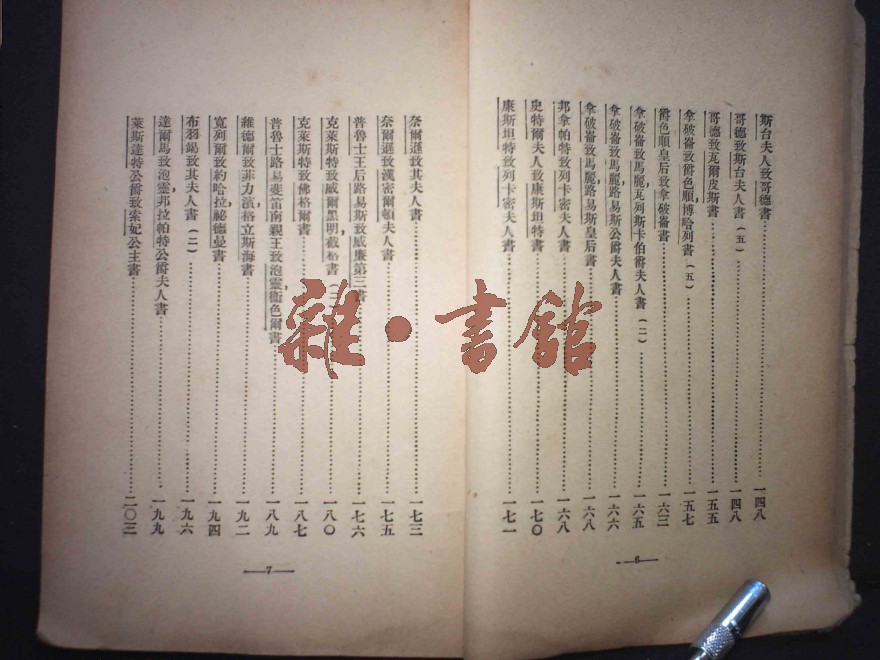 斯台夫人致哥德書…………一四八
哥德致斯台夫人書(五)…………一四八
哥德致瓦爾皮斯書…………一五五
拿破崙致爵色順博哈列書(五)…………一五七
爵色順皇后致拿破崙書…………一六三
拿破崙致馬麗瓦列斯卡伯爵夫人書(二)…………一六五
拿破崙致馬麗路易斯公爵夫人書…………一六六
拿破崙致馬麗路易斯皇后書…………一六八
邦拿帕特致列卡密夫人書…………一六八
史特爾夫人致康斯坦特書…………一七〇
康斯坦特致列卡密夫人書…………一七一
6
奈爾遜致其夫人書…………一七三
奈爾遜致漢密爾頓夫人書…………一七五
普魯士王后路易斯致威廉第三書…………一七六
克萊斯特致威爾黑明截格書…………一八〇
克萊斯特致佛格爾書…………一八七
普魯士路易斐笛南親王致泡靈衞色爾書…………一八九
維德爾致菲力濱格立斯海書…………一九二
寬列爾致約哈拉祕德曼書…………一九四
布羽竭致其夫人書(二)…………一九六
達爾馬致泡靈邦拉帕特公爵夫人書…………一九九
萊斯達特公爵致索妃公主書…………二〇三
7
雜·書館